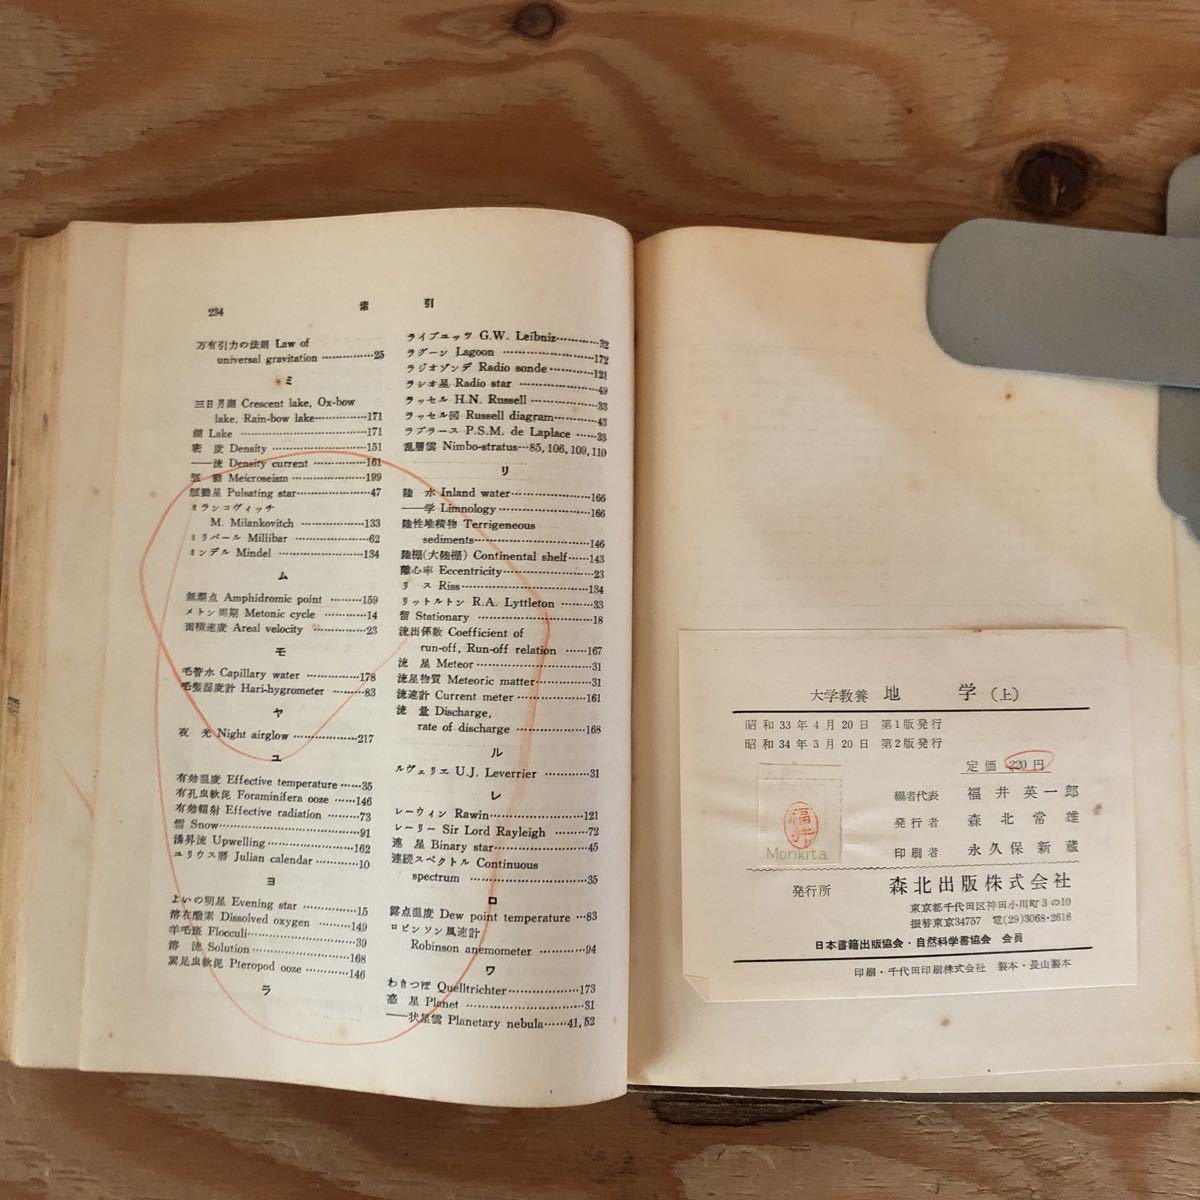 234
索 引
万有引力の法則 Law of
universal gravitation ……………25
ミ
三日月湖 Crescent lake, Ox-bow
lake, Rain-bow lake……………171
湖 Lake ……………171
密 度 Density ……………151
――流 Density current ……………161
脈 動 Meicroseism ……………199
脈動星 Pulsating star……………47
ミランコヴィッチ
M. Milankovitch ……………133
ミリバール Millibar ……………62
ミンデル Mindel ……………134
ム
無潮点 Amphidromic point ………159
メトン周期 Metonic cycle ………14
面積速度 Areal velocity ……………23
モ
毛管水 Capillary water ……………178
毛髪湿度計 Hari-hygrometer ………83
ヤ
夜 光 Night airglow………………217
ユ
有効温度 Effective temperature……35
有孔虫軟泥 Foraminifera ooze ……146
有効輻射 Effective radiation ………73
雪 Snow………………………91
湧昇流 Upwelling……………………162
ユリウス暦 Julian calendar …………10
ヨ
よいの明星 Evening star ……………15
溶在酸素 Dissolved oxygen ………149
羊毛斑 Flocculi……………………39
溶 流 Solution……………………168
翼足虫軟泥 Pteropod ooze …………146
ラ
ライプニッツ G.W. Leibniz…………32
ラグーン Lagoon ……………………172
ラジオゾンデ Radio sonde…………121
ラジオ星 Radio star ………………49
ラッセル H.N. Russell………………33
ラッセル図 Russell diagram…………43
ラプラース P.S.M. de Laplace ……33
乱層雲 Nimbo-stratus…85, 106, 109, 110
リ
陸 水 Inland water………………166
――学 Limnology……………………166
陸性堆積物 Terrigeneous
sediments……………………146
陸棚(大陸棚) Continental shelf……143
離心率 Eccentricity…………………23
リ ス Riss………………………134
リットルトン R.A. Lyttleton ………33
留 Stationary ………………………18
流出係数 Coefficient of
run-off, Run-off relation ……167
流 星 Meteor………………………31
流星物質 Meteoric matter……………31
流速計 Current meter………………161
流 量 Discharge,
rate of discharge ………………168
ル
ルヴェリエ U.J. Leverrier …………31
レ
レーウィン Rawin……………………121
レーリー Sir Lord Rayleigh ………72
連 星 Binary star…………………45
連続スペクトル Continuous
spectrum ………………………35
ロ
露点温度 Dew point temperature …83
ロビンソン風速計
Robinson anemometer ……………94
ワ
わきつぼ Quelltrichter………………173
惑 星 Planet ………………………31
――状星雲 Planetary nebula……41, 52
大学教養 地 学 (上)
昭和33年4月20日 第1版発行
昭和34年3月20日 第2版発行
定価 220円
編者代表 福井英一郎
発行者 森北常雄
印刷者 永久保新蔵
福井
Morikita
発行所 森北出版株式会社
東京都千代田区神田小川町3の10
振替東京34757 電(29)3068・2616
日本書籍出版協会・自然科学書協会 会員
印刷・千代田印刷株式会社 製本・長山製本